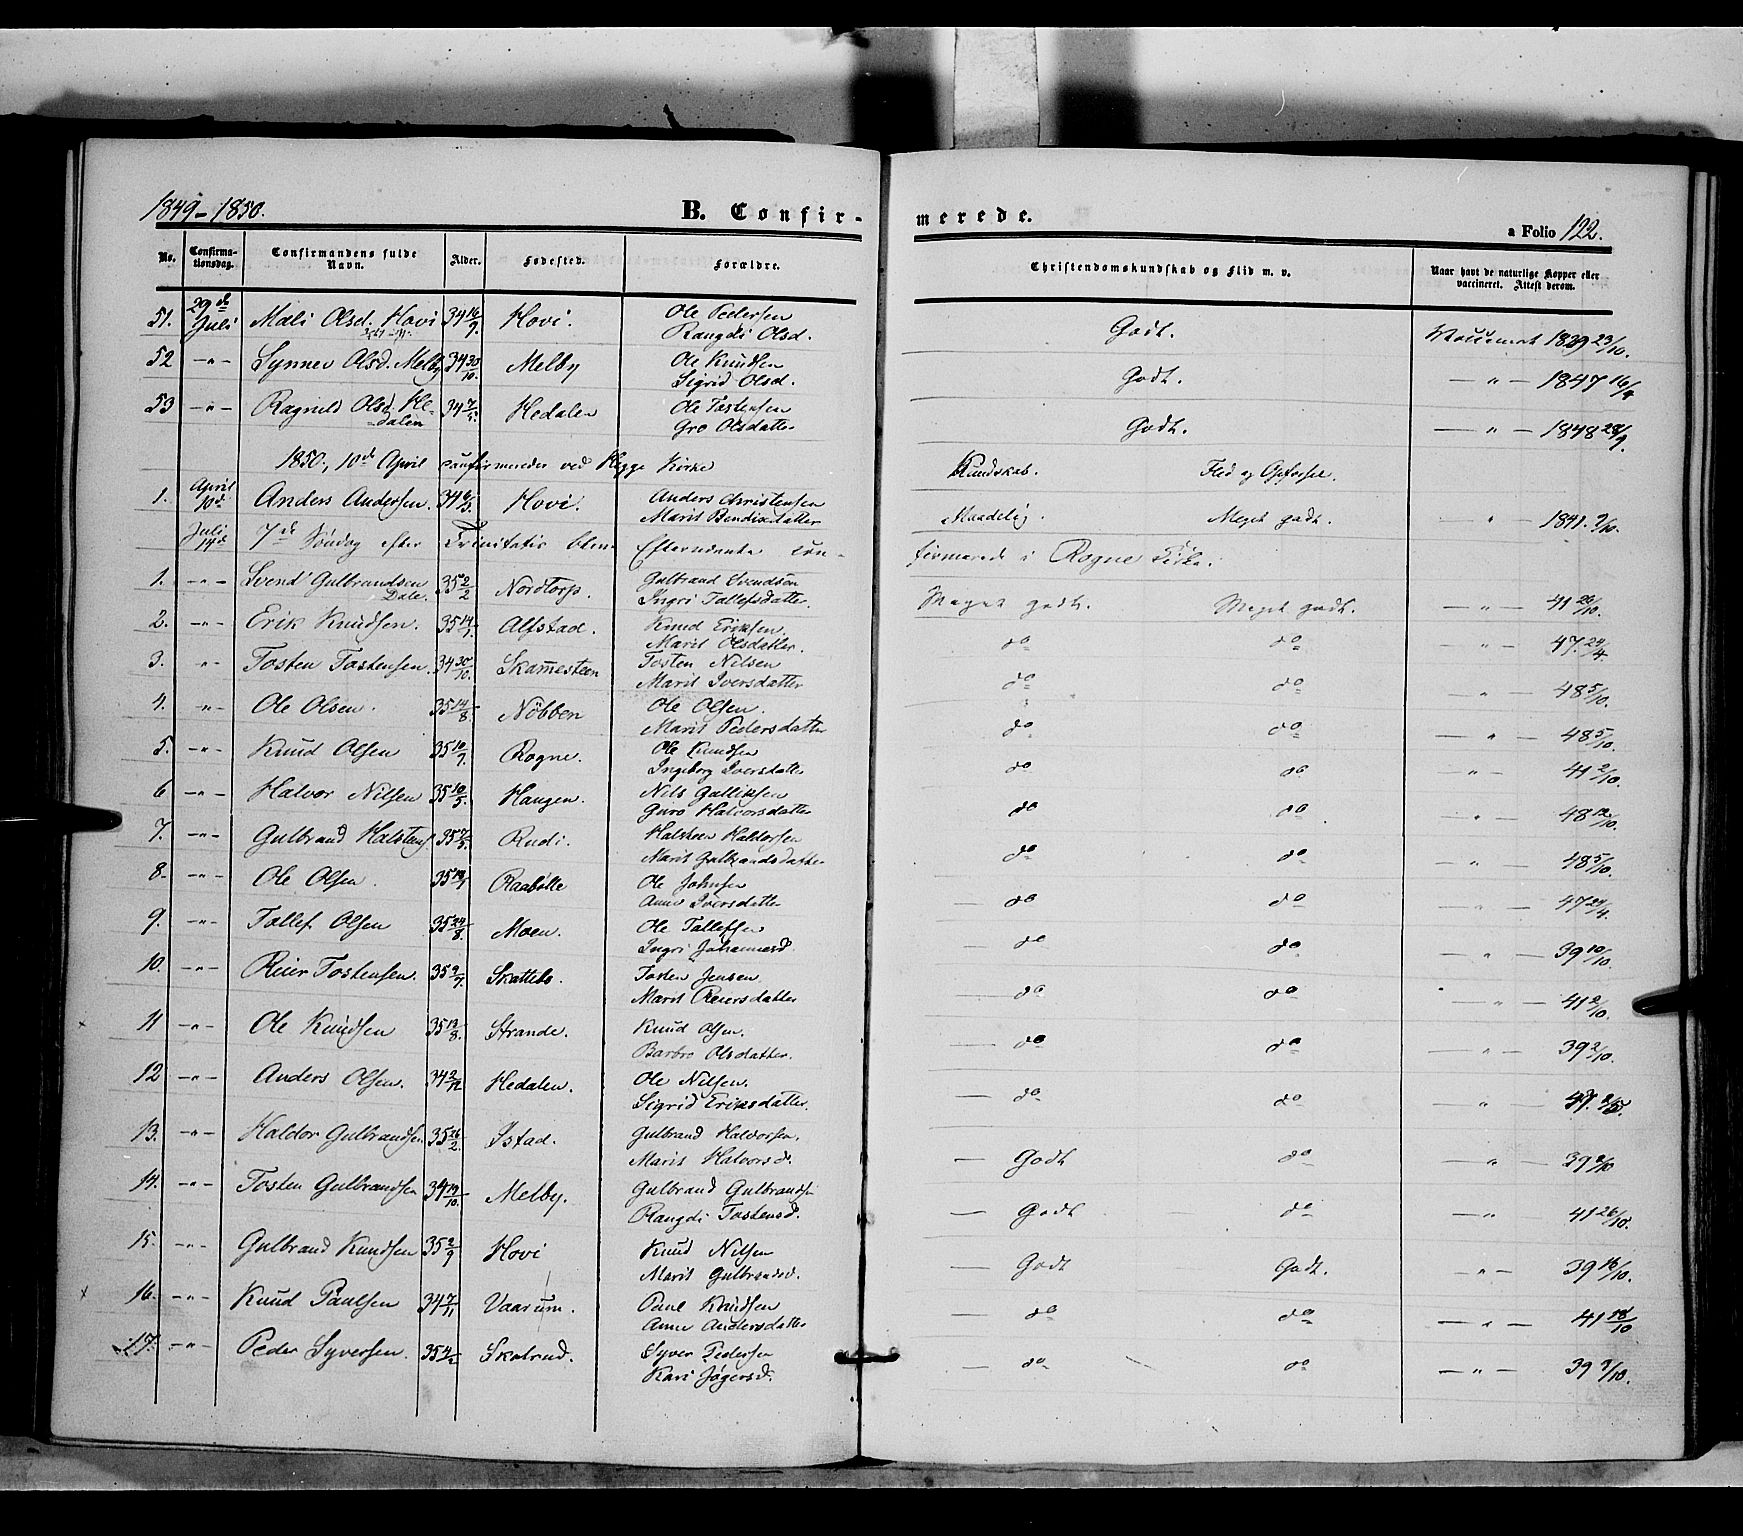 1849-1850. B. Confir- merede. a Folio 122.
No. Confirma-tionsdag. Confirmandens fulde Navn. Alder. Fødested. Forældre. Christendomskundskab og Flid m. v. Naar havt de naturlige Kopper eller vaccineret. Attest derom.
51. 29de Juli Mali Olsd. Hovi 34 16/9 Hovi. Ole Pedersen Rangdi Olsd. Godt. 1839 23/10.
52 -"- Synnev Olsd. Melby 34 30/10. Melby Ole Knudsen Sigrid Olsd. Godt. -"- 1847 16/4
53 -"- Ragnild Olsd. Hedalen 34 7/5. Hedalen Ole Tostensen Gro Olsdatter Godt. -"- 1848 28/9.
1850, 10de April confirmeret ved Hegge Kirke Kundskab. Flid og Opførsel.
1. April 10de Anders Andersen. 34 6/5. Hovi. Anders Christensen Marit Bendixdatter Maadelig. Meget godt. " 1841. 9/10.
Juli 14de 7de Søndag efter Trinitatis bleve Efternævnte con- firmerede i Rogne Kirke.
1. -"- Svend Gulbrandsen Dale. 35 2/2 Nordtorp. Gulbrand Svendsen Ingri Tollefsdatter. Meget godt. Meget godt. -"- 41 26/10.
2. -"- Erik Knudsen. 35 14/7. Alfstad. Knud Eriksen. Marit Olsdatter. do do " 47. 24/4.
3. -"- Tosten Tostensen 34 30/10. Skamesteen Tosten Nilsen Marit Iversdatter do do " 48 5/10.
4. -"- Ole Olsen. 35 14/8 Nöbben Ole Olsen. Marit Pedersdatter do do -"- 48 5/10.
5. -"- Knud Olsen 35 10/7. Rogne. Ole Knudsen Ingeborg Iversdatter do do -"- 41 2/10.
6 -"- Halvor Nilsen 35 10/5. Haugen. Nils Gulliksen Guro Halvorsdatter do do " 48 12/10.
7. -"- Gulbrand Halstens 35 7/5. Rudi. Halsteen Haldorsen Marit Gulbrandsdatter do do " 48 5/10.
8. -"- Ole Olsen. 35 Raabölle Ole Johnsen Anne Iversdatter do do -"- 47 24/4.
9. -"- Tollef Olsen 35 24/8. Moen. Ole Tollefsen Ingri Johannesd. do do -"- 39 10/10.
10. -"- Reier Tostensen. 35 9/7. Skattebo. Tosten Jensen Marit Reiersdatter do do -"- 41 2/10.
x 11 -"- Ole Knudsen 35 13/8. Strande. Knud Olsen. Barbro Olsdatter. do do -"- 39 2/10.
12 -"- Anders Olsen. 34 2/12 Hedalen. Ole Nilsen. Sigrid Eriksdatter. do do "
13. -"- Haldor Gulbrandsen 35 26/2. Istad. Gulbrand Haldorsen. Marit Halvorsd. Godt do " 39 2/10
14. -"- Tosten Gulbrandsen 34 19/10. Melby. Gulbrand Gulbrandsen Rangdi Tostensd. Godt do -"- 41 26/10.
15. -"- Gulbrand Knudsen 35 2/9 Hovi Knud Nilsen Marit Gulbrandsd. Godt Godt. -"- 39 16/10.
x 16. -"- Knud Paulsen 34 7/11 Vaarum. Paul Knudsen Anne Andersdatter do do -"- 41 18/10
17. -"- Peder Syversen. 35 4/2 Skatrud. Syver Pedersen Kari Jøgersd. do do -"- 39 9/10.